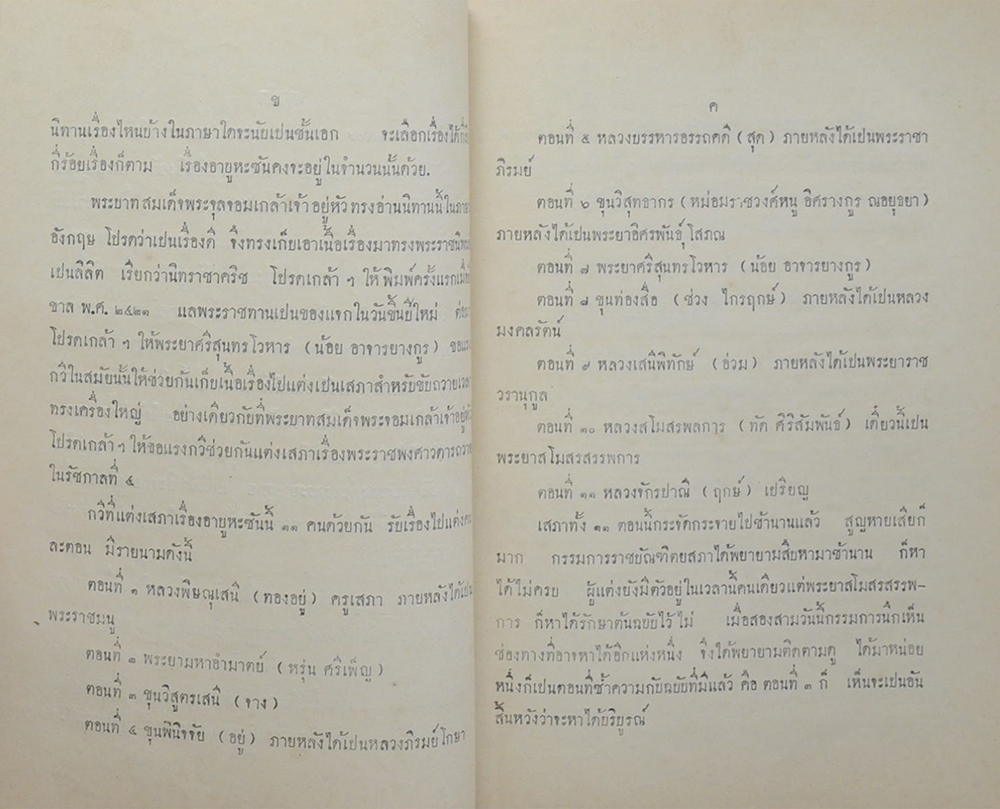 ข
นิทานเรื่องไหนบ้างในภาษาใดจะนับเป็นชั้นเอก จะเลือกเรื่องได้
กี่ร้อยเรื่องก็ตาม เรื่องอายูหะซันคงจะอยู่ในจำนวนนั้นด้วย.
พระบาทสมเด็จพระจุลจอมเกล้าเจ้าอยู่หัว ทรงอ่านนิทานนี้ใน
อังกฤษ โปรดว่าเป็นเรื่องดี จึงทรงเก็บเอาเนื้อเรื่องมาทรงพระราชนิพนธ์
เป็นลิลิต เรียกว่านิทราชาคริช โปรดเกล้า ฯ ให้พิมพ์ครั้งแรกเมื่อ
ขาล พ.ศ. ๒๔๒๑ แลพระราชทานเป็นของแจกในวันขึ้นปีใหม่ ต่อมา
โปรดเกล้า ฯ ให้พระยาศรีสุนทรโวหาร (น้อย อาจารยางกูร) ขอแรง
กวีในสมัยนั้นให้ช่วยกันเก็บเนื้อเรื่องไปแต่งเป็นเสภาสำหรับขับถวายเวลา
ทรงเครื่องใหญ่ อย่างเดียวกับที่พระบาทสมเด็จพระจอมเกล้าเจ้าอยู่หัว
โปรดเกล้า ฯ ให้ขอแรงกวีช่วยกันแต่งเสภาเรื่องพระราชพงศาวดารถวาย
ในรัชกาลที่ ๔
กวีที่แต่งเสภาเรื่องอายูหะซันนี้ ๑๑ คนด้วยกัน รับเรื่องไปแต่งคน
ละตอน มีรายนามดังนี้
ตอนที่ ๑ หลวงพิษณุเสนี (ทองอยู่) ครูเสภา ภายหลังได้เป็น
พระราชมนู
ตอนที่ ๒ พระยามหาอำมาตย์ (หรุ่น ศรีเพ็ญ)
ตอนที่ ๓ ขุนวิสูตรเสนี (จาง)
ตอนที่ ๔ ขุนพินิจจัย (อยู่) ภายหลังได้เป็นหลวงภิรมย์โกษา
ค
ตอนที่ ๕ หลวงบรรหารอรรถคดี (สุด) ภายหลังได้เป็นพระราชา
ภิรมย์
ตอนที่ ๖ ขุนวิสุทธากร (หม่อมราชวงศ์หนู อิศรางกูร ณอยุธยา)
ภายหลังได้เป็นพระยาอิศรพันธุ์โสภณ
ตอนที่ ๗ พระยาศรีสุนทรโวหาร (น้อย อาจารยางกูร)
ตอนที่ ๘ ขุนท่องสื่อ (ช่วง ไกรฤกษ์) ภายหลังได้เป็นหลวง
มงคลรัตน์
ตอนที่ ๙ หลวงเสนีพิทักษ์ (อ่วม) ภายหลังได้เป็นพระยาราช
วรานุกูล
ตอนที่ ๑๐ หลวงสโมสรพลการ (ทัด ศิริสัมพันธ์) เดี๋ยวนี้เป็น
พระยาสโมสรสรรพการ
ตอนที่ ๑๑ หลวงจักรปาณี (ฤกษ์) เปรียญ
เสภาทั้ง ๑๑ ตอนนี้กระจัดกระจายไปช้านานแล้ว สูญหายเสียก็
มาก กรรมการราชบัณฑิตยสภาได้พยายามสืบหามาช้านาน ก็หา
ได้ไม่ครบ ผู้แต่งยังมีตัวอยู่ในเวลานี้คนเดียวแต่พระยาสโมสรสรรพ-
การ ก็หาได้รักษาต้นฉบับไว้ไม่ เมื่อสองสามวันนี้กรรมการนึกเห็น
ช่องทางที่อาจหาได้อีกแห่งหนึ่ง จึงได้พยายามติดตามดู ได้มาหน่อย
หนึ่งก็เป็นตอนที่ซ้ำความกับฉบับที่มีแล้ว คือ ตอนที่ ๓ ก็ เห็นจะเป็นอัน
สิ้นหวังว่าจะหาได้บริบูรณ์